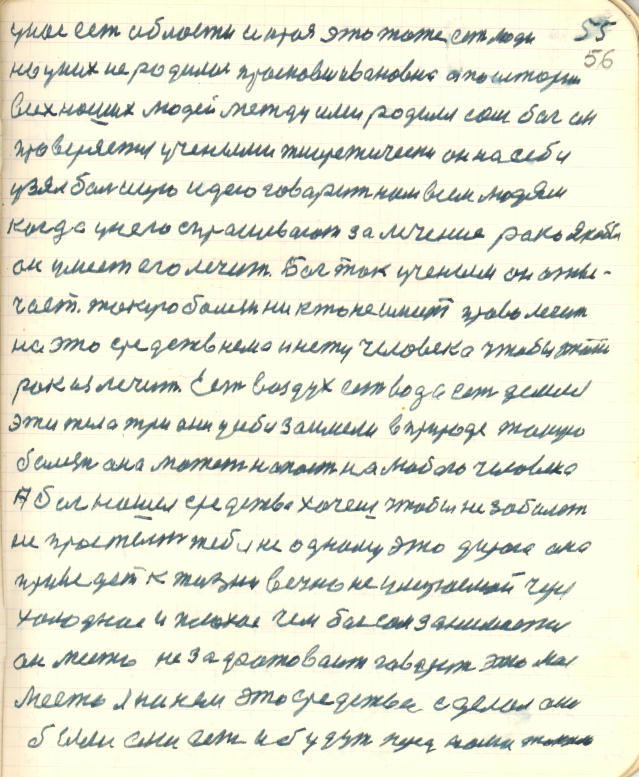 55
56
у нас ест области история это тоже ест люди
но у них не родился прасковия ивановна а по истории
всех наших людей между ими родился сам бог он
проверяется учеными тиоретически он на себя
узял болшую идею говарит нам всем людям
когда у него спрашивают за лечение рака
он умеет его лечит. Бог так ученым он отве-
чает. такую болезн никто не имеит право лечит
на это средств нема и нету человека чтобы
рак из лечит. Ест воздух ест вода ест земля
эти тела три они у себя заимели в природе такую
болезн она может напаст на любого человека
А бог нашел средства хочеш чтобы не заболет
не тебя не одному это дорога она
приведет к жизни вечно не умераемой через
холодное и плохое чем бог сам занимается
он место говарит это мое
место я на нем это средства сделал они
были они ест и будут перед нами